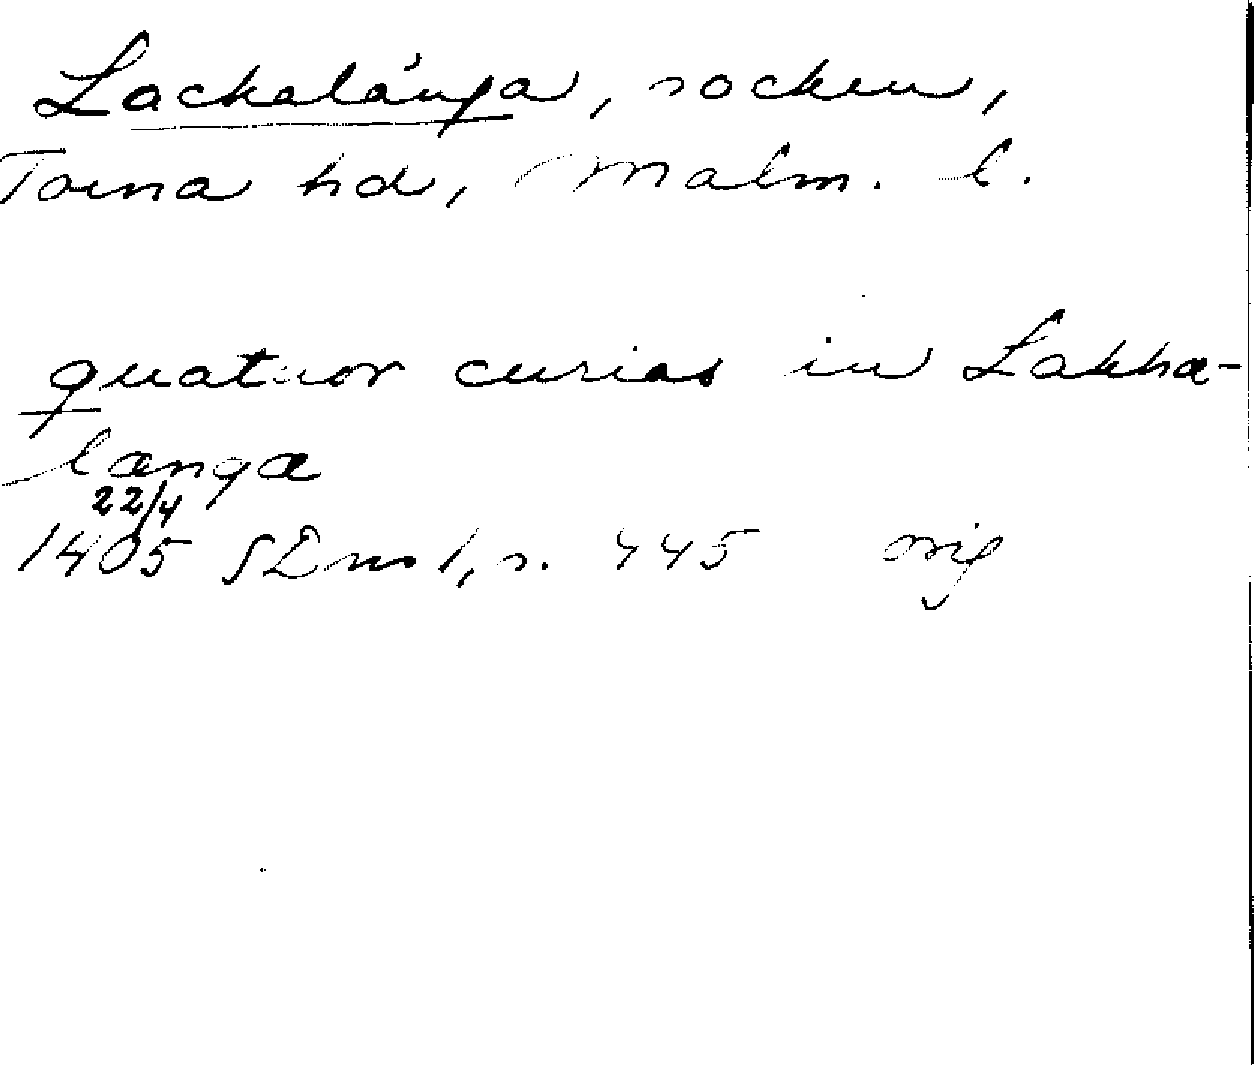 Lackalänga, socken,
Torna hd, Malm. l.
quatuor curias in Lakkæ-
længæ
22/4
1405 SDns 1, s. 445 orig